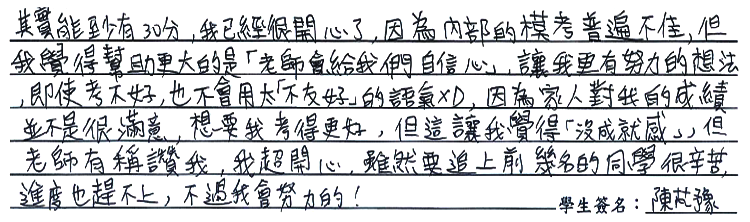 其實能到有30分,我已經很開心了,因為內部的模考普遍不佳,但
我覺得幫助更大的是「老師會給我們自信心」,讓我更有努力的想法
,即使考不好,也不會用太「不友好」的語氣XD,因為家人對我的成績
並不是很滿意,想要我考得更好,但這讓我覺得「沒成就感」,但
老師有稱讚我,我超開心,雖然要追上前幾名的同學很辛苦,
進度也趕不上,不過我會努力的!
學生簽名:陳芃豫